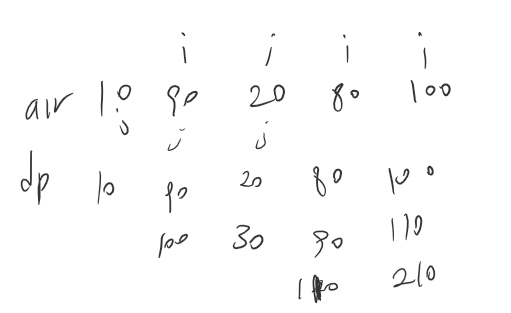 i i i i
arr 10 90 20 80 100
j j j
dp 10 90 20 80 100
100 30 90 110
110 210